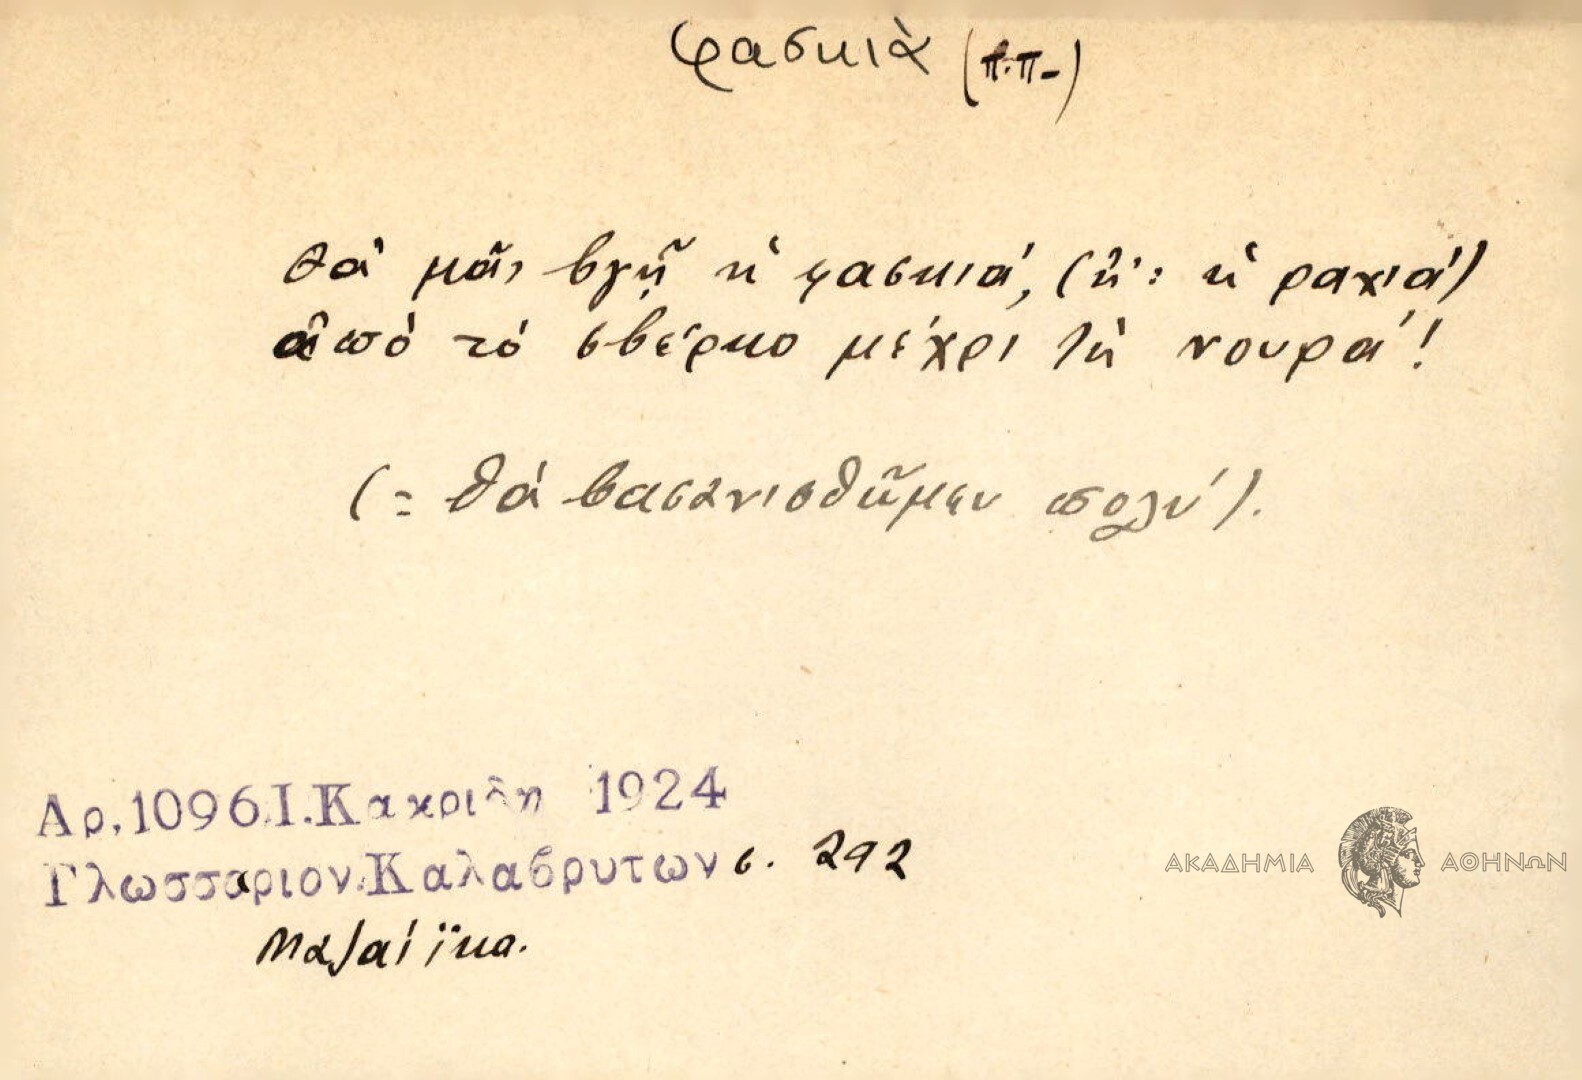 φασκιὰ (π.π.)
θὰ μᾶς βγῇ ἡ φασκιά, (ἤ: ἡ ραχιά)
ἀπὸ τὸ σβέρκο μέχρι τὴ νουρά!
(= θὰ βασανισθῶμεν πολύ).
Αρ.1096.Ι.Κακριδη 1924
Γλωσσαριον.Καλαβρυτων σ. 292
Μαζαίϊκα.
ΑΚΑΔΗΜΙΑ ΑΘΗΝΩΝ